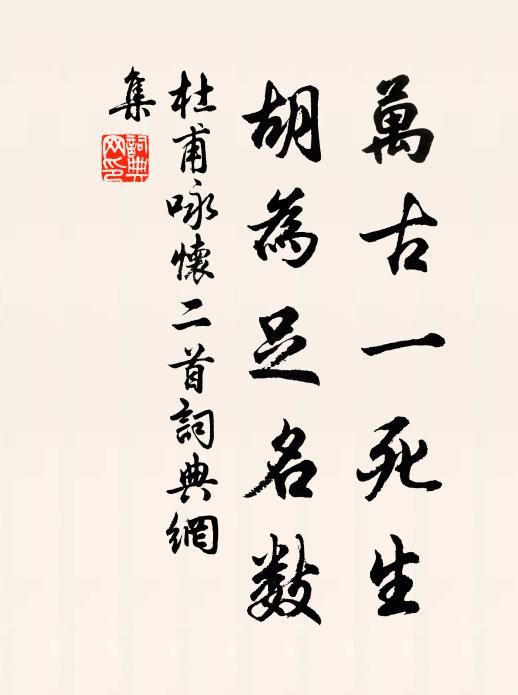 萬古一死生
胡為足名數
杜甫咏懷二首詞典網
集
詞典
网印